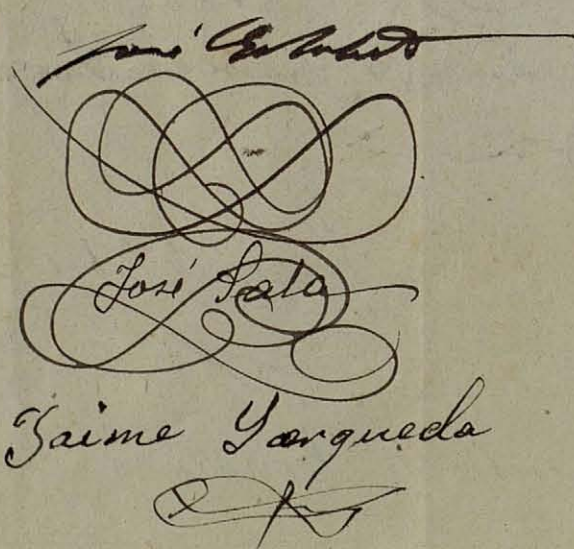 José
José Sala
Jaime Yarqueda